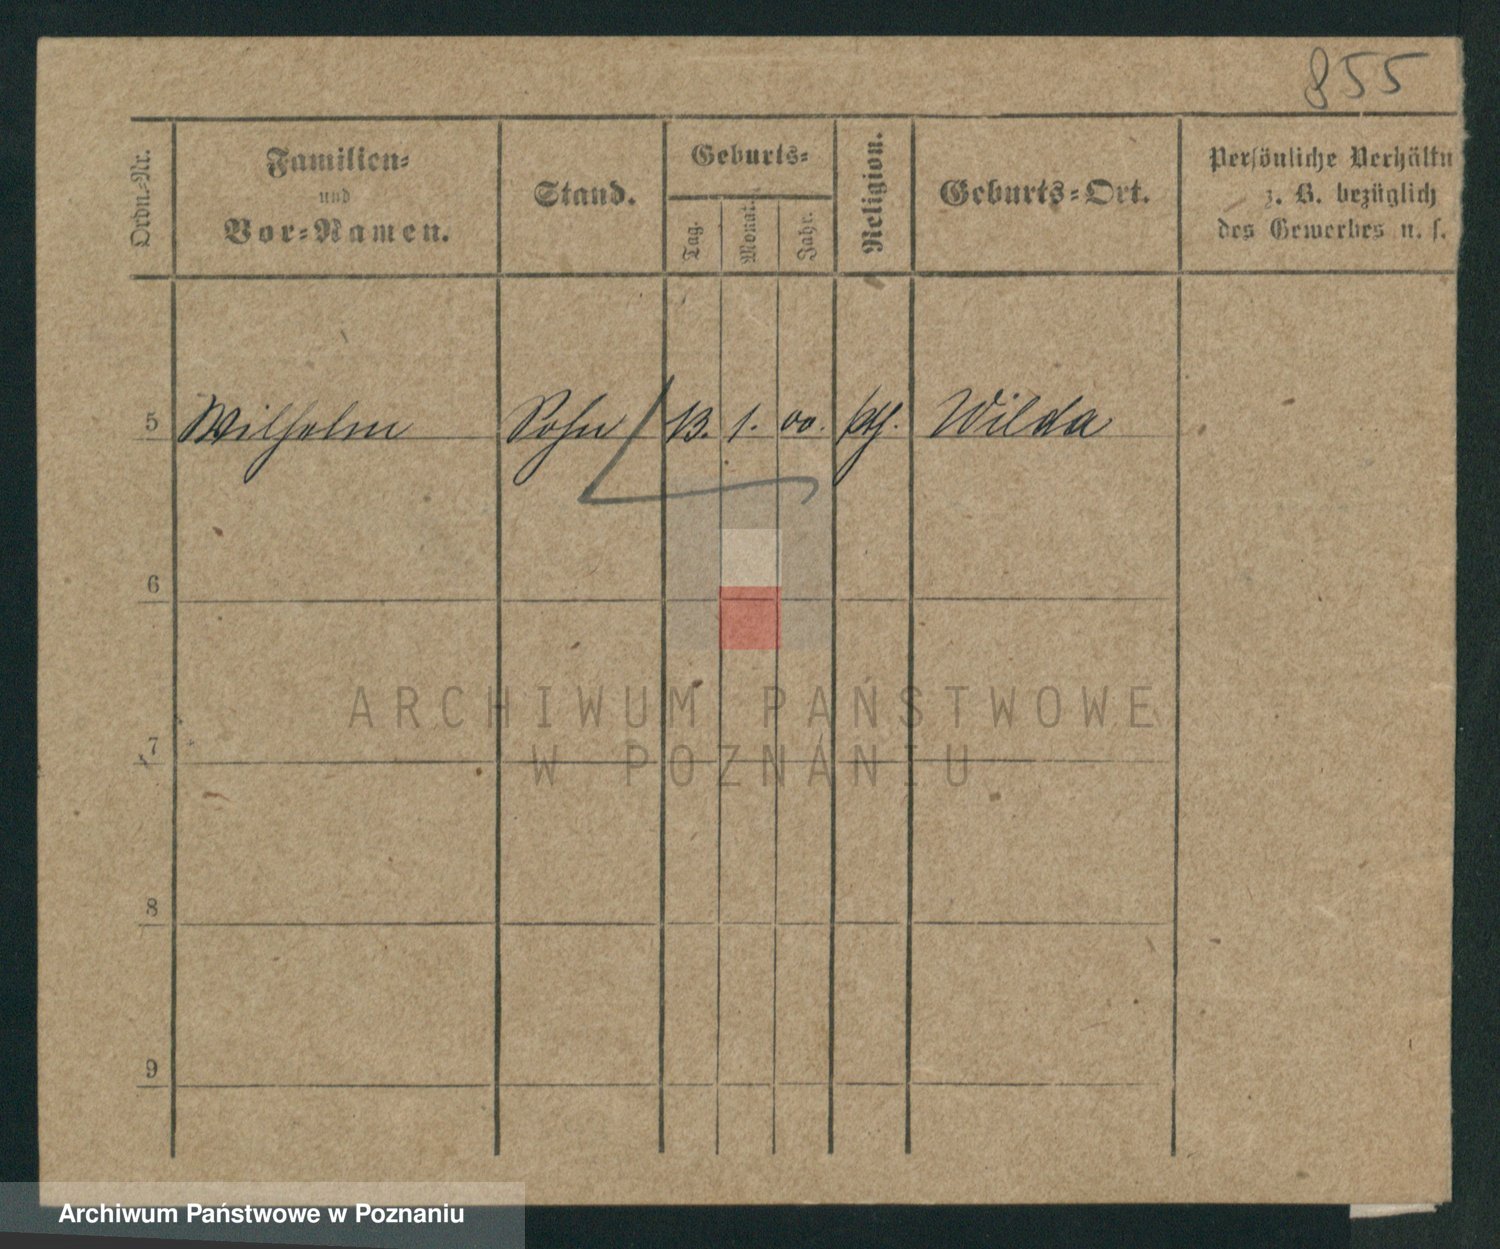 855
Ordn.-Nr.
Familien-
und
Vor-Namen.
Stand.
Geburts-
Tag.
Monat.
Jahr.
Religion.
Geburts-Ort.
Persönliche Verhältn
z. B. bezüglich
des Gewerbes u. s.
5 Wilhelm Sohn 13. 1. 00. kth. Wilda
6
7
8
9
ARCHIWUM PAŃSTWOWE
W POZNANIU
Archiwum Państwowe w Poznaniu